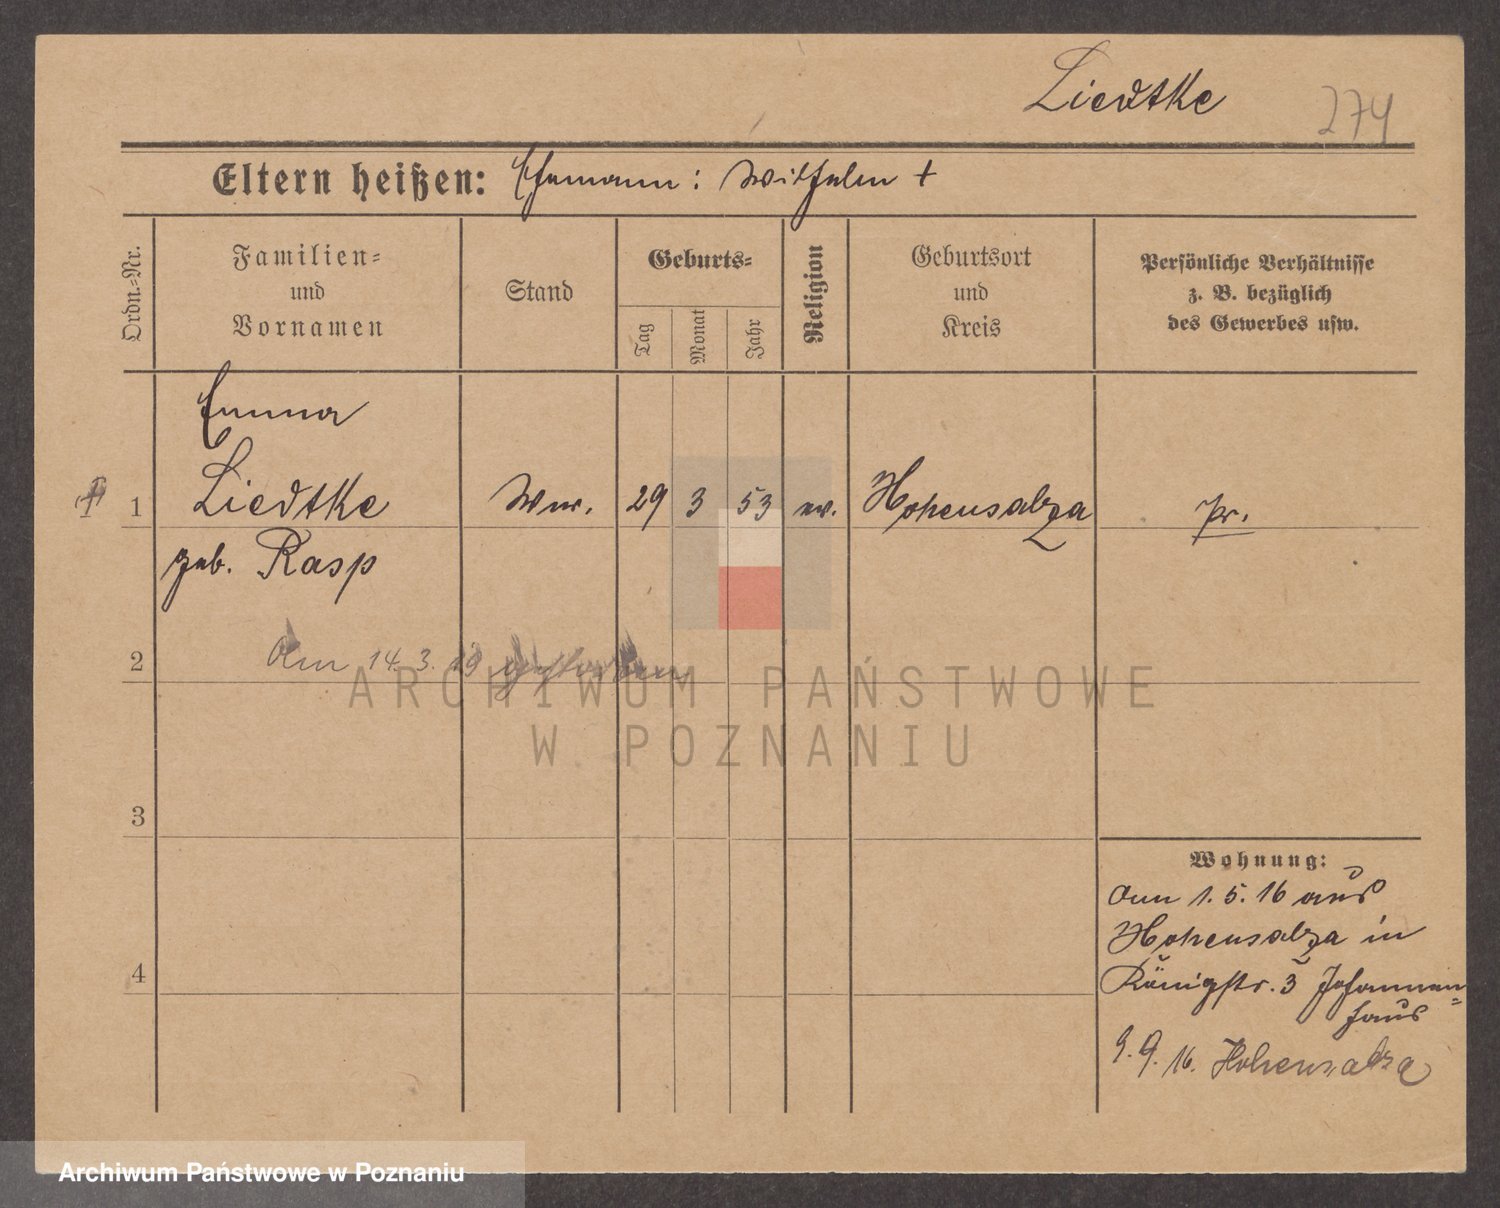 Liedtke
274
Eltern heißen: Ehemann: Wilhelm +
Ordn.-Nr.
Familien-
und
Vornamen
Stand
Geburts-
Tag
Monat
Jahr
Religion
Geburtsort
und
Kreis
Persönliche Verhältnisse
z. B. bezüglich
des Gewerbes usw.
Emma
1 Liedtke Ww. 29 3 53 ev. Hohensalza pr.
geb. Rasp
2 Am 14.3.19 gestorben
ARCHIWUM PAŃSTWOWE
W POZNANIU
3
4
Wohnung:
Am 1.5.16 aus
Hohensalza in
Königstr. 3 Johannen=
haus
9.9.16. Hohensalza
Archiwum Państwowe w Poznaniu